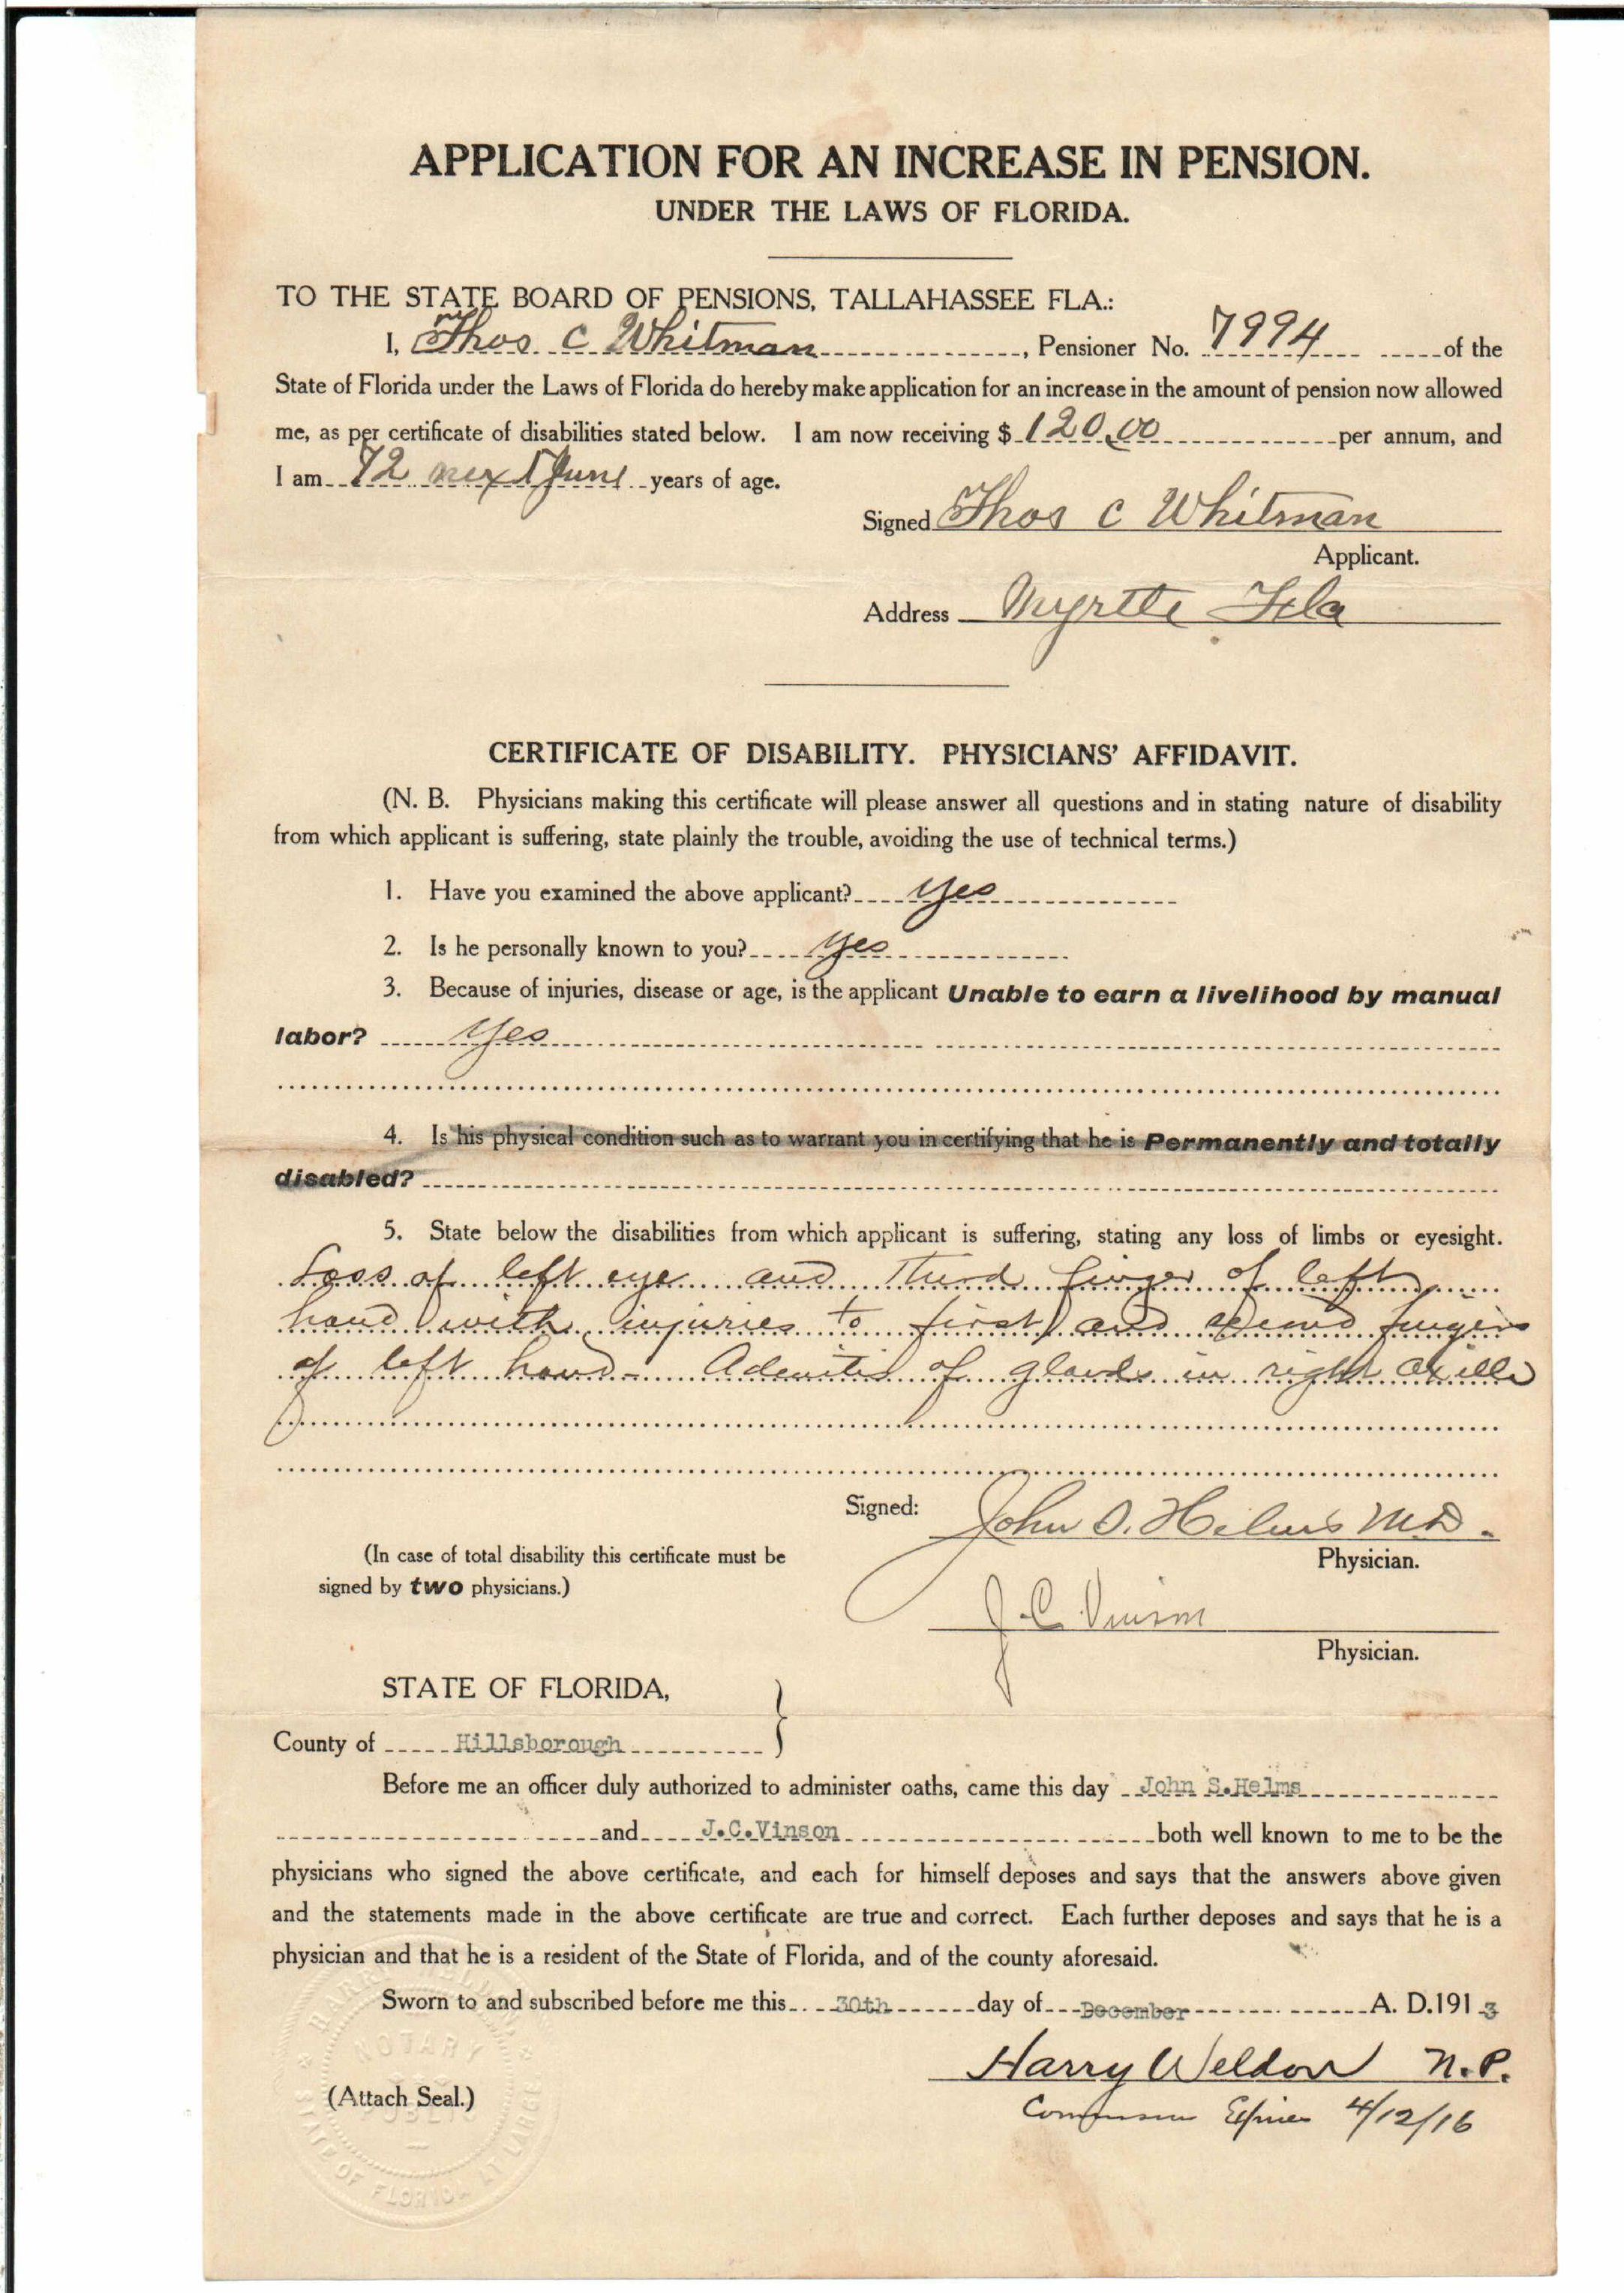 APPLICATION FOR AN INCREASE IN PENSION.
UNDER THE LAWS OF FLORIDA.
TO THE STATE BOARD OF PENSIONS, TALLAHASSEE FLA.:
I, Thos C Whitman, Pensioner No. 7994 of the
State of Florida under the Laws of Florida do hereby make application for an increase in the amount of pension now allowed
me, as per certificate of disabilities stated below. I am now receiving $ 120.00 per annum, and
I am 72 next June years of age.
Signed Thos C Whitman
Applicant.
Address Myrtle Fla
CERTIFICATE OF DISABILITY. PHYSICIANS' AFFIDAVIT.
(N. B. Physicians making this certificate will please answer all questions and in stating nature of disability
from which applicant is suffering, state plainly the trouble, avoiding the use of technical terms.)
1. Have you examined the above applicant? yes
2. Is he personally known to you? yes
3. Because of injuries, disease or age, is the applicant Unable to earn a livelihood by manual
labor? yes
4. Is his physical condition such as to warrant you in certifying that he is Permanently and totally
disabled?
5. State below the disabilities from which applicant is suffering, stating any loss of limbs or eyesight.
Loss of left eye and third finger of left
hand with injuries to first and second fingers
of left hand - Adenitis of glands in right axilla
Signed: John S. Helms M.D.
Physician.
(In case of total disability this certificate must be
signed by two physicians.)
J. C. Vinson
Physician.
STATE OF FLORIDA,
County of Hillsborough
Before me an officer duly authorized to administer oaths, came this day John S.Helms
and J.C.Vinson both well known to me to be the
physicians who signed the above certificate, and each for himself deposes and says that the answers above given
and the statements made in the above certificate are true and correct. Each further deposes and says that he is a
physician and that he is a resident of the State of Florida, and of the county aforesaid.
Sworn to and subscribed before me this 30th day of December A. D. 1913
Harry Weldon N.P.
Commission Expires 4/12/16
(Attach Seal.)
NOTARY
PUBLIC
STATE OF FLORIDA AT LARGE